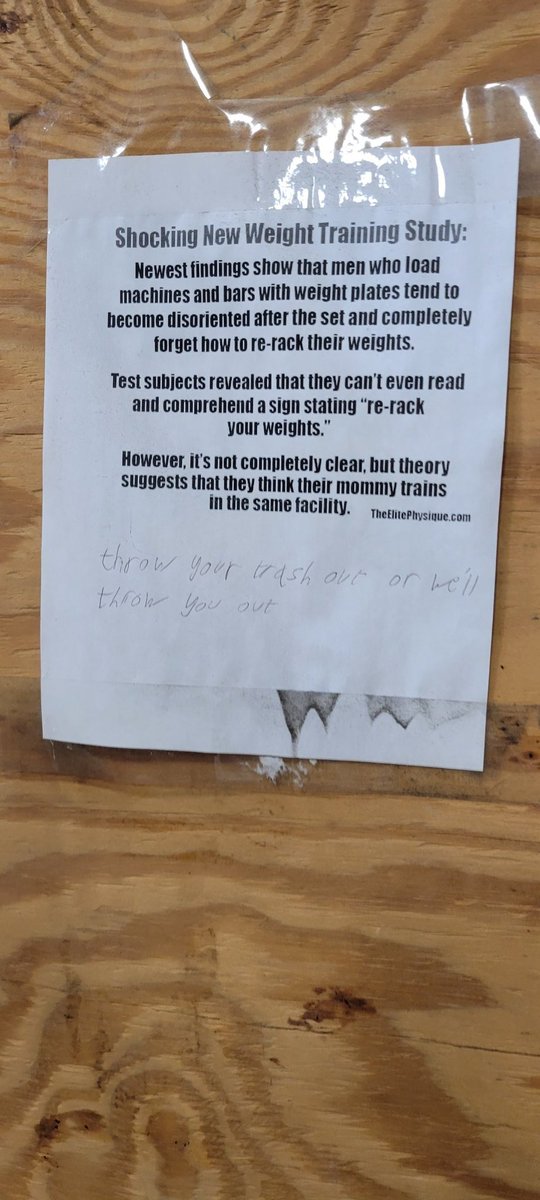 Shocking New Weight Training Study:
Newest findings show that men who load
machines and bars with weight plates tend to
become disoriented after the set and completely
forget how to re-rack their weights.
Test subjects revealed that they can't even read
and comprehend a sign stating “re-rack
your weights.”
However, it's not completely clear, but theory
suggests that they think their mommy trains
in the same facility.
TheElitePhysique.com
throw your trash out or we'll
throw you out